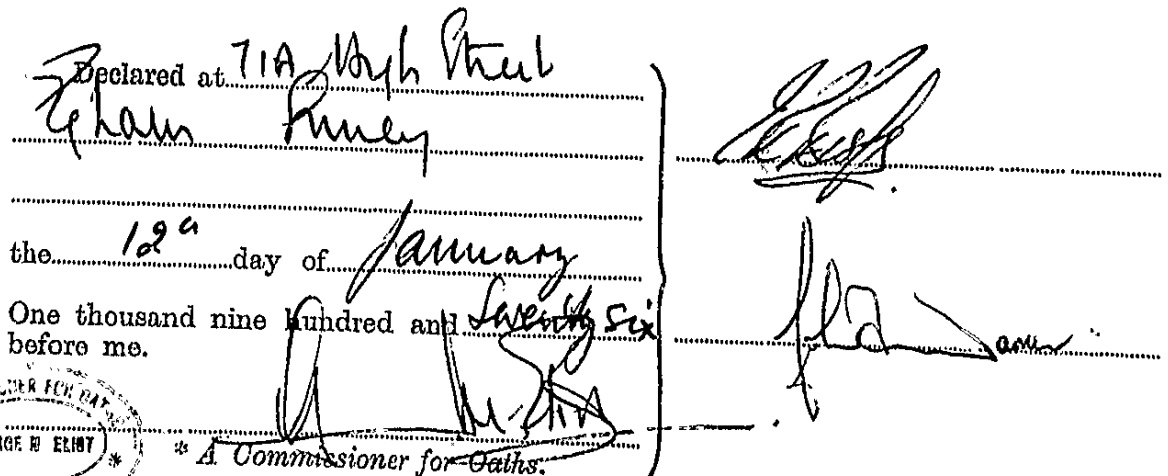 Declared at 71A High Street
Egham Surrey
the 12th day of January
One thousand nine hundred and seventy six
before me.
* A Commissioner for Oaths.